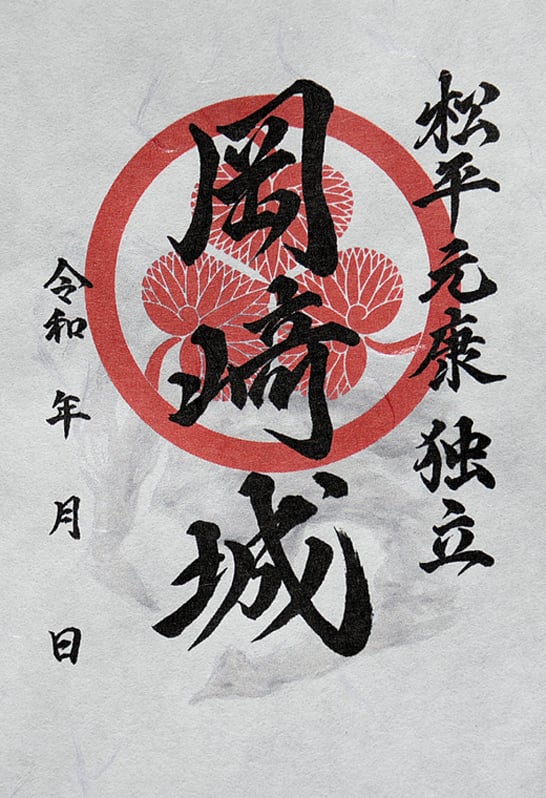 松平元康 独立
岡崎城
令和 年 月 日